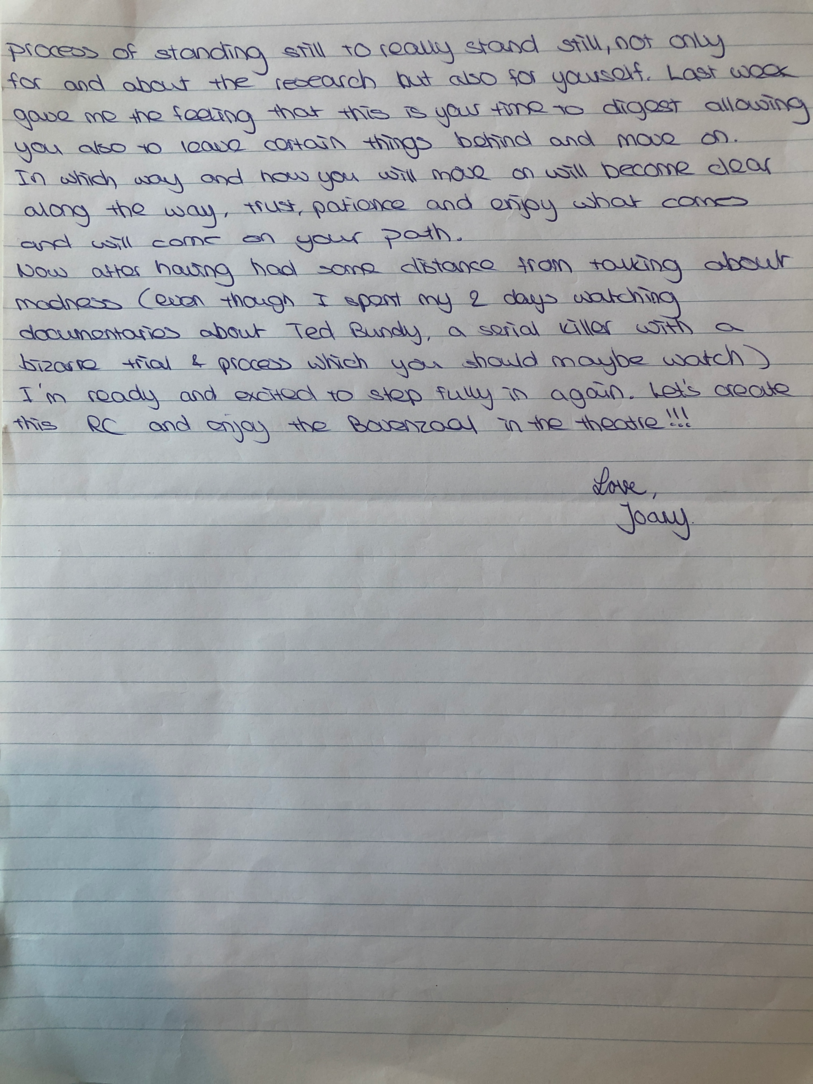 process of standing still to really stand still, not only
for and about the research but also for yourself. Last week
gave me the feeling that this is your time to digest allowing
you also to leave certain things behind and move on.
In which way and how you will move on will become clear
along the way, trust, patience and enjoy what comes
and will come on your path.
Now after having had some distance from talking about
madness (even though I spent my 2 days watching
documentaries about Ted Bundy, a serial killer with a
bizarre trial & process which you should maybe watch)
I'm ready and excited to step fully in again. Let's create
this RC and enjoy the Bovenzaal in the theatre!!!
Love,
Joany.